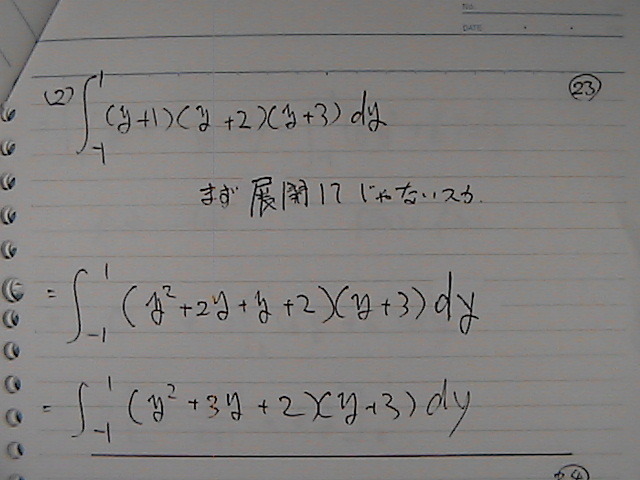 NO.
DATE
(2) ∫₋₁¹ (y+1)(y+2)(y+3) dy
㉓
まず 展開して じゃないスか.
= ∫₋₁¹ (y²+2y+y+2)(y+3) dy
= ∫₋₁¹ (y²+3y+2)(y+3) dy